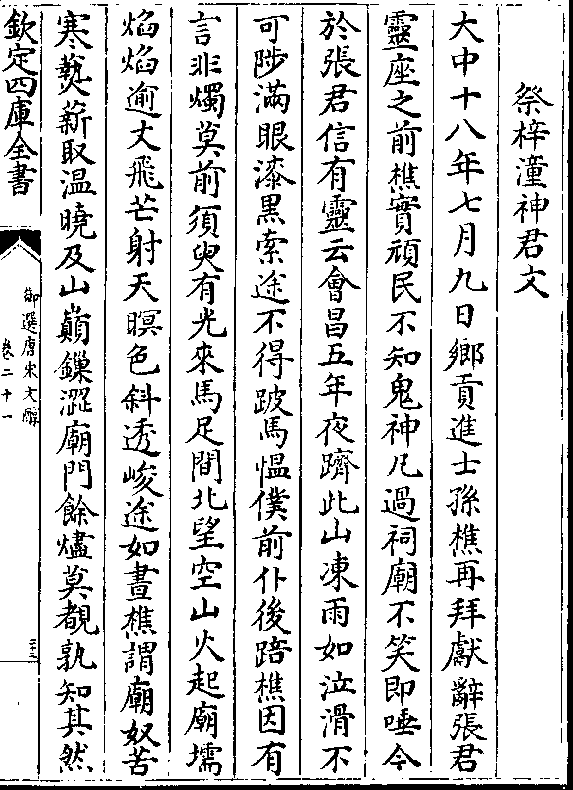 祭梓潼神君文
大中十八年七月九日鄉貢進士孫樵再拜獻辭張君
靈座之前樵實頑民不知鬼神凡過祠廟不笑即唾今
於張君信有靈云會昌五年夜躋此山凍雨如泣滑不
可陟滿眼漆黒索途不得跛馬慍僕前仆後踣樵因有
言非燭莫前須臾有光來馬足間北望空山火起廟壖
焰焰逾丈飛芒射天暝色斜透峻途如晝樵謂廟奴苦
寒爇薪取溫曉及山巔鏁澀廟門餘燼莫覩孰知其然
欽定四庫全書
御選唐宋文醇
卷二十一
三十三